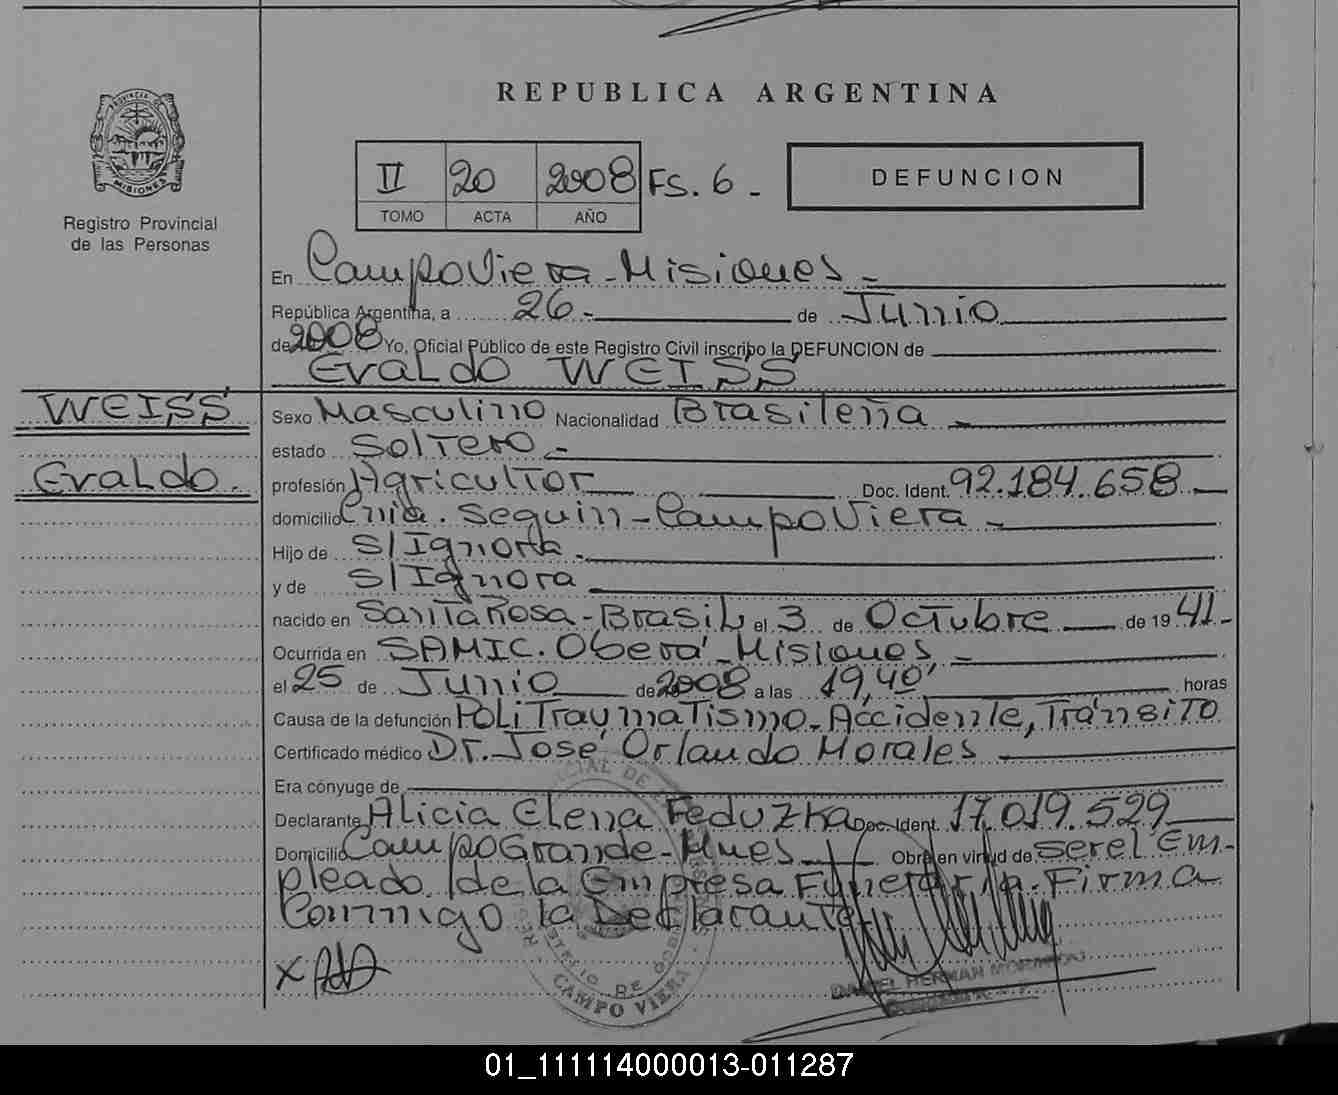 REPUBLICA ARGENTINA
PROVINCIA DE
MISIONES
Registro Provincial
de las Personas
II 20 2008 FS. 6 -
TOMO ACTA AÑO
DEFUNCION
En CampoViera - Misiones -
República Argentina, a 26 - de Junio
de 2008 Yo, Oficial Público de este Registro Civil inscribo la DEFUNCION de
Evaldo WEISS
WEISS
Evaldo.
Sexo Masculino Nacionalidad Brasileña -
estado Soltero -
profesión Agricultor Doc. Ident. 92.184.658 -
domicilio Cnia. Seguin - CampoViera -
Hijo de S/Ignora -
y de S/Ignora
nacido en Santa Rosa - Brasil, el 3 de Octubre de 19 41 -
Ocurrida en SAMIC. Oberá - Misiones -
el 25 de Junio de 2008 a las 19,40' horas
Causa de la defunción PoliTraumatismo - Accidente, Tránsito
Certificado médico Dr. José Orlando Morales
Era cónyuge de
Declarante Alicia Elena Feduzka Doc. Ident. 17.019.529
Domicilio CampoGrande - Mnes Obra en virtud de ser el Em-
pleado/de la Empresa Funeraria. Firma
Conmigo la Declarante
X
REGISTRO DE
CAMPO VIERA
DANIEL HERNAN
01_111114000013-011287